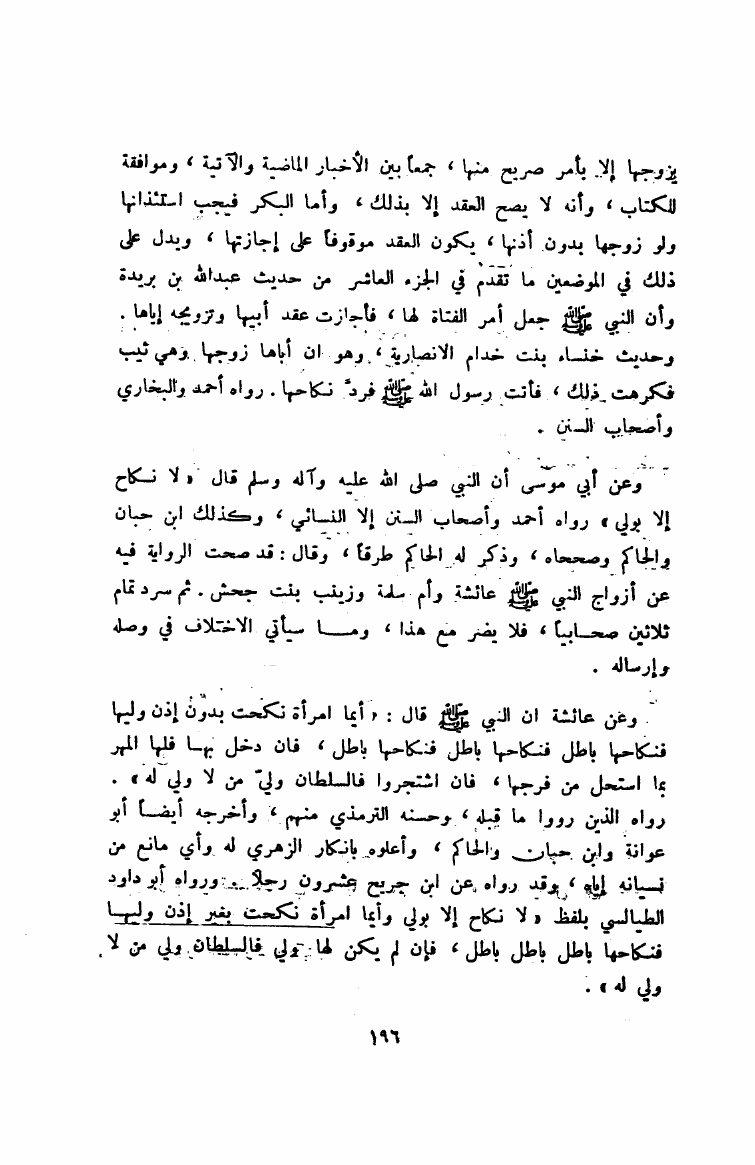 يزوجها إلا بأمر صريح منها ، جمعاً بين الأخبار الماضية والآتية ، وموافقة
للكتاب ، وأنه لا يصح العقد إلا بذلك ، وأما البكر فيجب استئذانها
ولو زوجها بدون أذنها ، يكون العقد موقوفاً على إجازتها ، ويدل على
ذلك في الموضعين ما تقدم في الجزء العاشر من حديث عبدالله بن بريدة
وأن النبي ﷺ جعل أمر الفتاة لها ، فأجازت عقد أبيها وتزويجه إياها .
وحديث خنساء بنت خدام الانصارية ، وهو ان أباها زوجها وهي ثيب
فكرهت ذلك ، فأتت رسول الله ﷺ فردَّ نكاحها . رواه أحمد والبخاري
وأصحاب السنن .
وعن أبي موسى أن النبي صلى الله عليه وآله وسلم قال « لا نكاح
إلا بولي » رواه أحمد وأصحاب السنن إلا النسائي ، وكذلك ابن حبان
والحاكم وصححاه ، وذكر له الحاكم طرقاً ، وقال : قد صحت الرواية فيه
عن أزواج النبي ﷺ عائشة وأم سلمة وزينب بنت جحش . ثم سرد تمام
ثلاثين صحابياً ، فلا يضر مع هذا ، وما سيأتي الاختلاف في وصله
وإرساله .
وعن عائشة ان النبي ﷺ قال : « أيما امرأة نكحت بدون إذن وليها
فنكاحها باطل فنكاحها باطل فنكاحها باطل ، فان دخل بها فلها المهر
بما استحل من فرجها ، فان اشتجروا فالسلطان وليّ من لا ولي له » .
رواه الذين رووا ما قبله ، وحسنه الترمذي منهم ، وأخرجه أيضاً أبو
عوانة وابن حبان والحاكم ، وأعلوه بانكار الزهري له وأي مانع من
نسيانه إياه ، وقد رواه عن ابن جريح عشرون رجلاً . ورواه أبو داود
الطيالسي بلفظ « لا نكاح إلا بولي وأيما امرأة نكحت بغير إذن وليها
فنكاحها باطل باطل باطل ، فإن لم يكن لها ولي فالسلطان ولي من لا
ولي له » .
١٩٦